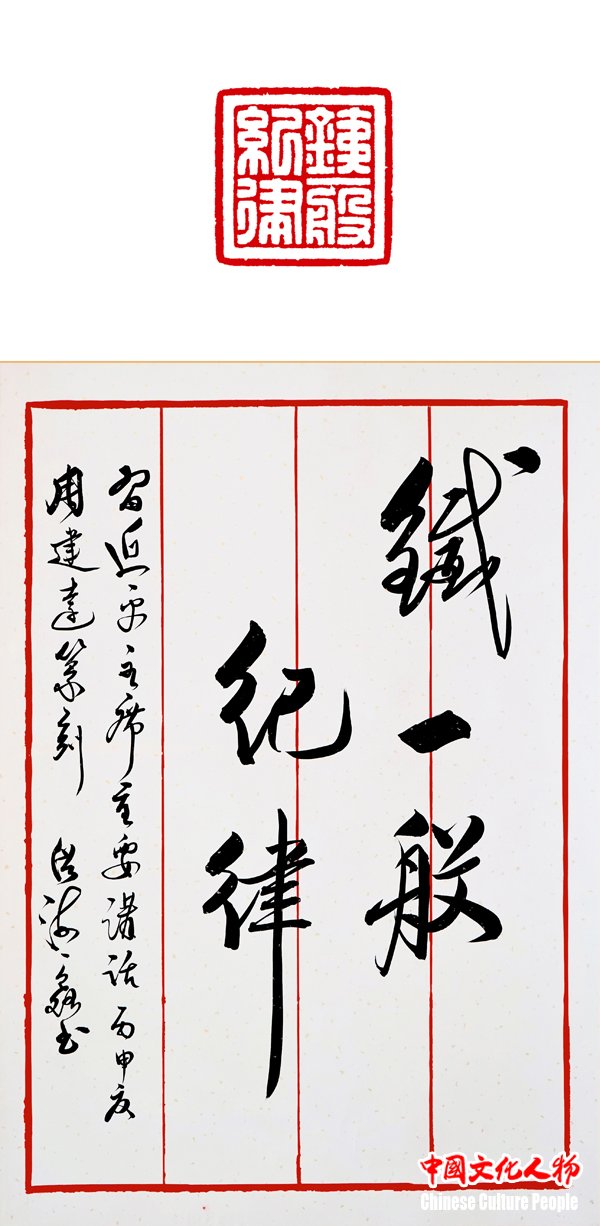 銕一般
紀律
鐵一般
紀律
習近平主席重要講話 丙申
周建達篆刻 書
中國文化人物
Chinese Culture People